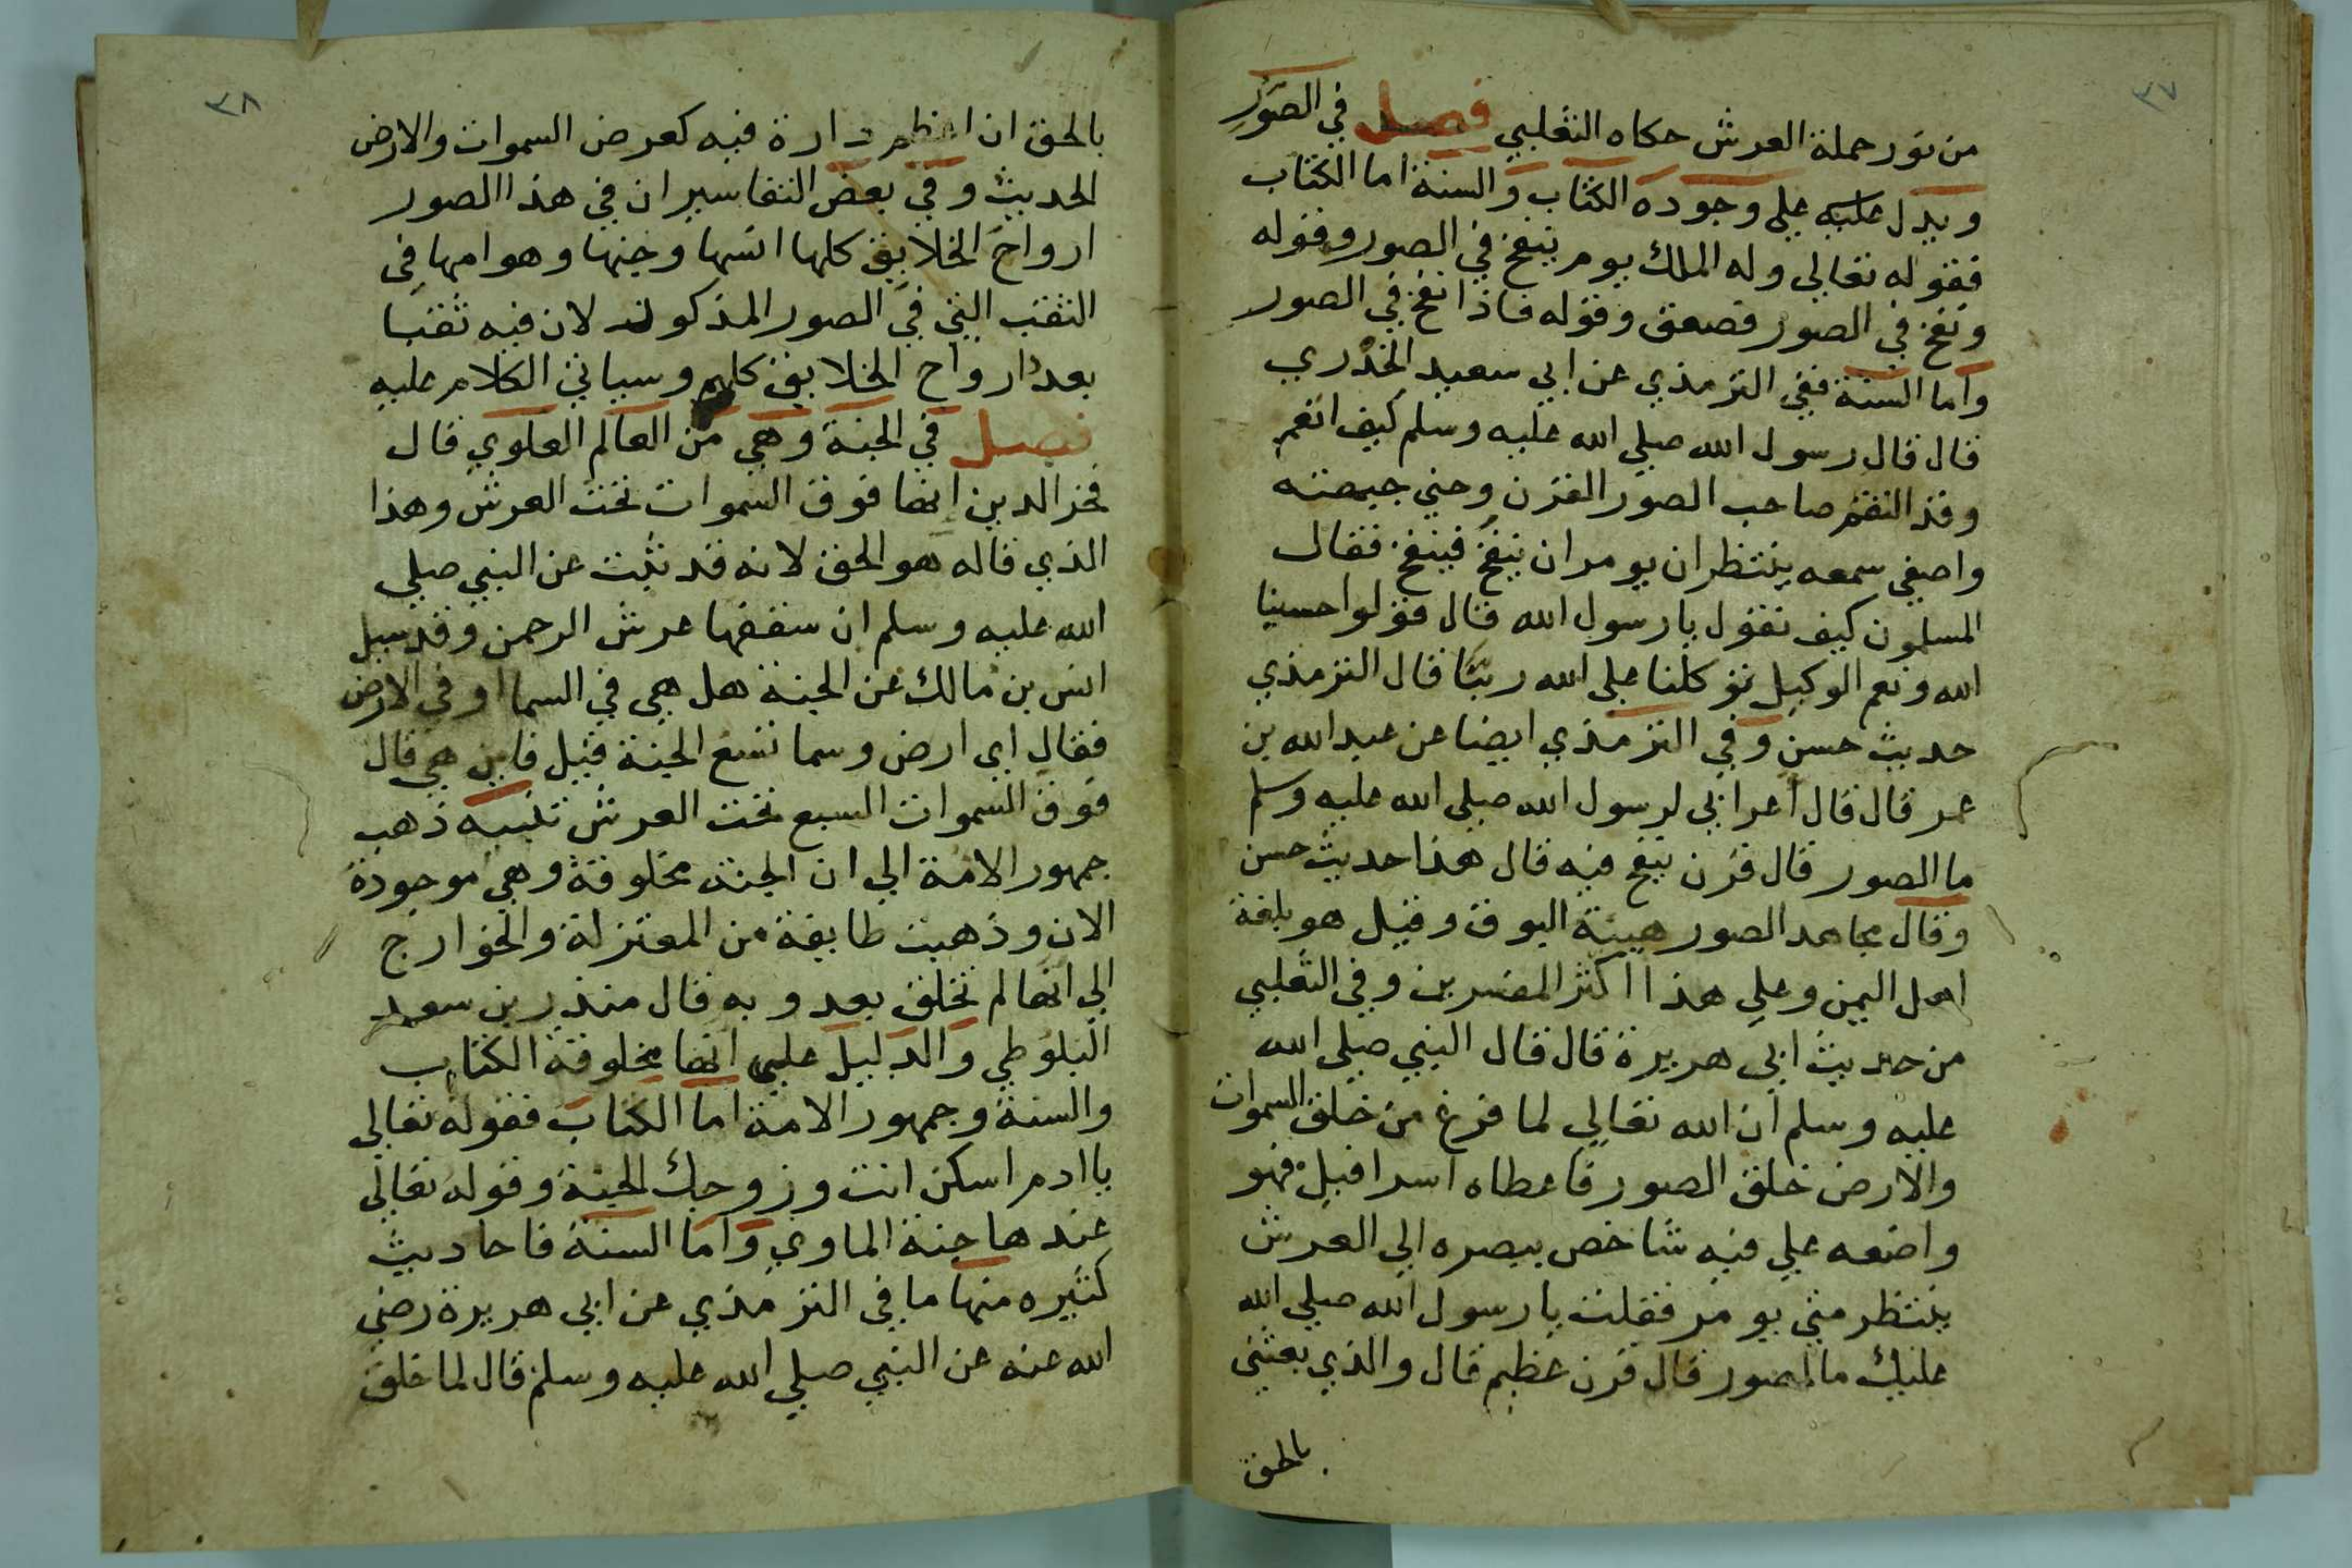 ٣٧
من نور حملة العرش حكاه الثعلبي فصل في الصور
ويدل عليه علي وجوده الكتاب والسنة اما الكتاب
فقوله تعالي وله الملك يوم ينفخ في الصور وقوله
ونفخ في الصور فصعق وقوله فاذا نفخ في الصور
واما السنة ففي الترمذي عن ابي سعيد الخدري
قال قال رسول الله صلي الله عليه وسلم كيف انعم
وقد التقم صاحب الصور القرن وحني جبهته
واصغي سمعه ينتظر ان يومر ان ينفخ فينفخ فقال
المسلمون كيف نقول يا رسول الله قال قولوا حسبنا
الله ونعم الوكيل توكلنا علي الله ربنا قال الترمذي
حديث حسن وفي الترمذي ايضا عن عبد الله بن
عمر قال قال اعرابي لرسول الله صلي الله عليه وسلم
ما الصور قال قرن ينفخ فيه قال هذا حديث حسن
وقال مجاهد الصور هيئة البوق وقيل هو بلغة
اهل اليمن وعلي هذا اكثر المفسرين وفي الثعلبي
من حديث ابي هريرة قال قال النبي صلي الله
عليه وسلم ان الله تعالي لما فرغ من خلق السموات
والارض خلق الصور فاعطاه اسرافيل فهو
واضعه علي فيه شاخص ببصره الي العرش
ينتظر متي يومر فقلت يا رسول الله صلي الله
عليك ما الصور قال قرن عظيم قال والذي بعثني
بالحق
٣٨
بالحق ان اعظم دارة فيه كعرض السموات والارض
الحديث وفي بعض التفاسير ان في هذا الصور
ارواح الخلايق كلها انسها وجنها وهوامها في
الثقب التي في الصور المذكور لان فيه ثقبا
بعدد ارواح الخلايق كلهم وسياتي الكلام عليه
فصل في الجنة وهي من العالم العلوي قال
فخر الدين انها فوق السموات تحت العرش وهذا
الذي قاله هو الحق لانه قد ثبت عن النبي صلي
الله عليه وسلم ان سقفها عرش الرحمن وقد سيل
انس بن مالك عن الجنة هل هي في السما او في الارض
فقال اي ارض وسما تسع الجنة قيل فاين هي قال
فوق السموات السبع تحت العرش تنبيه ذهب
جمهور الامة الي ان الجنة مخلوقة وهي موجودة
الان وذهبت طايفة من المعتزلة والخوارج
الي انها لم تخلق بعد وبه قال منذر بن سعيد
البلوطي والدليل علي انها مخلوقة الكتاب
والسنة وجمهور الامة اما الكتاب فقوله تعالي
يا ادم اسكن انت وزوجك الجنة وقوله تعالي
عندها جنة الماوي واما السنة فاحاديث
كثيره منها ما في الترمذي عن ابي هريرة رضي
الله عنه عن النبي صلي الله عليه وسلم قال لما خلق